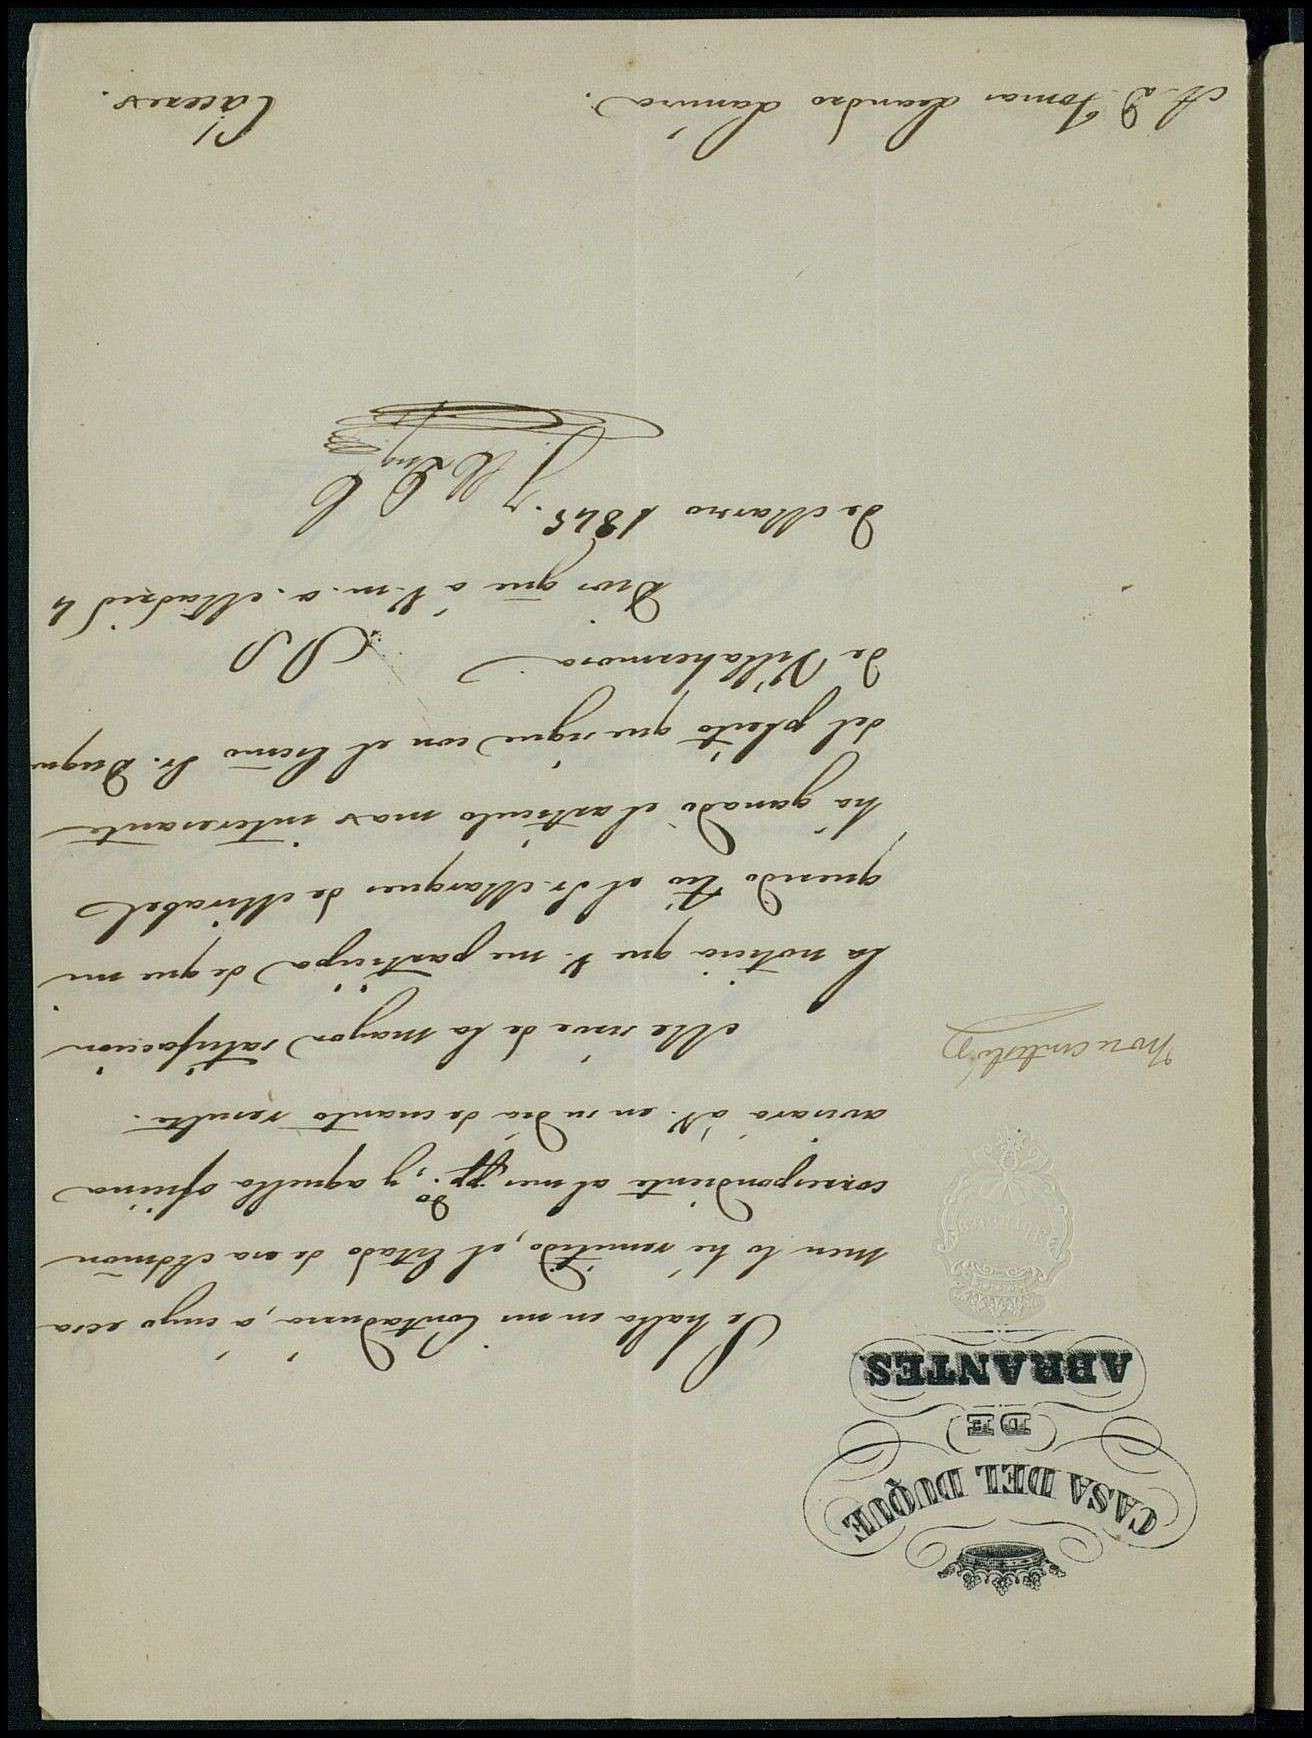 CASA DEL DUQUE
DE
ABRANTES
Se halla en mi Contaduria, á cuyo exa
men lo hé remitido, el Estado de esa Admōn
correspondiente al mes pp.do, y aquella oficina
avisará á V. en su dia de cuanto resulte.
Me sirve de la mayor satisfaccion
la noticia que V. me participa de que mi
querido tio el Sr. Marques de Mirabel
há ganado el articulo mas interesante
del pleito que sigue con el Excmo Sr. Duque
de Villahermosa.
Dios gue á V. m. a. Madrid 4
de Marzo 1845.
A. D. Tomas Leandro
Cáceres.